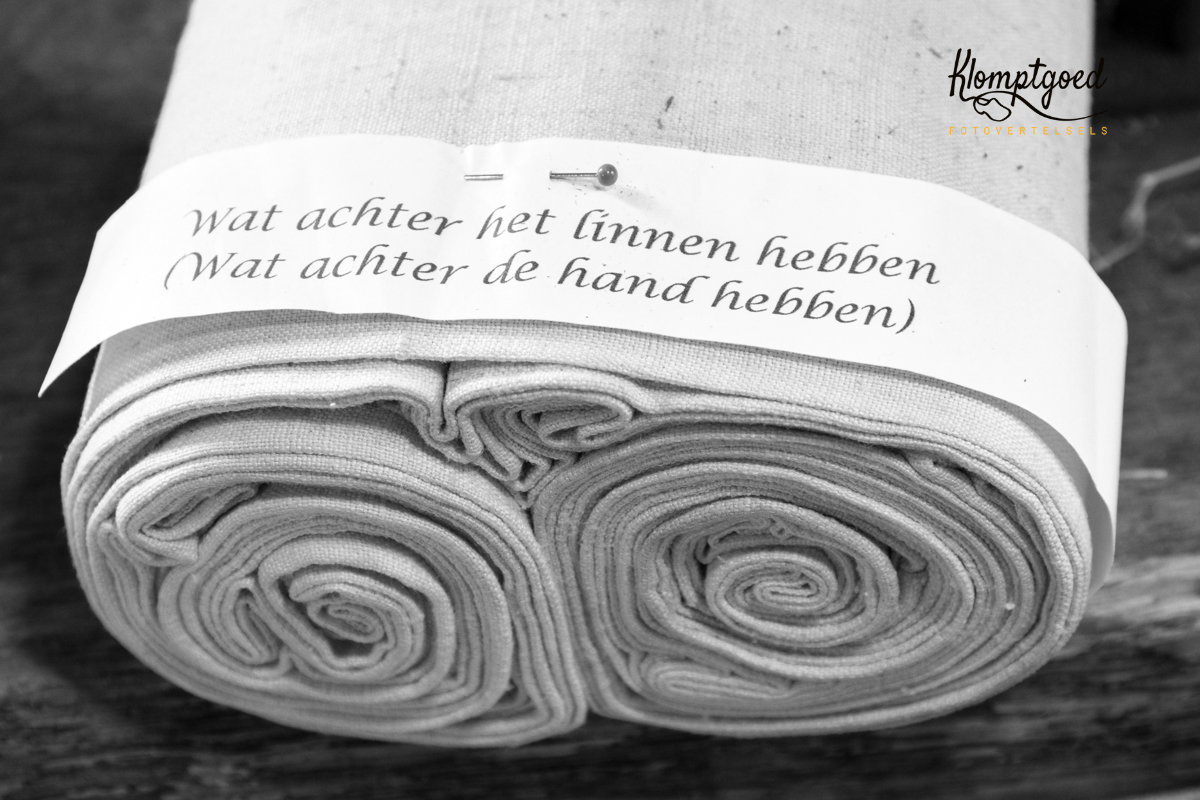 Klomptgoed
FOTOVERTELSELS
Wat achter het linnen hebben
(Wat achter de hand hebben)